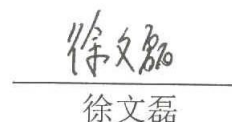 徐文磊
徐文磊